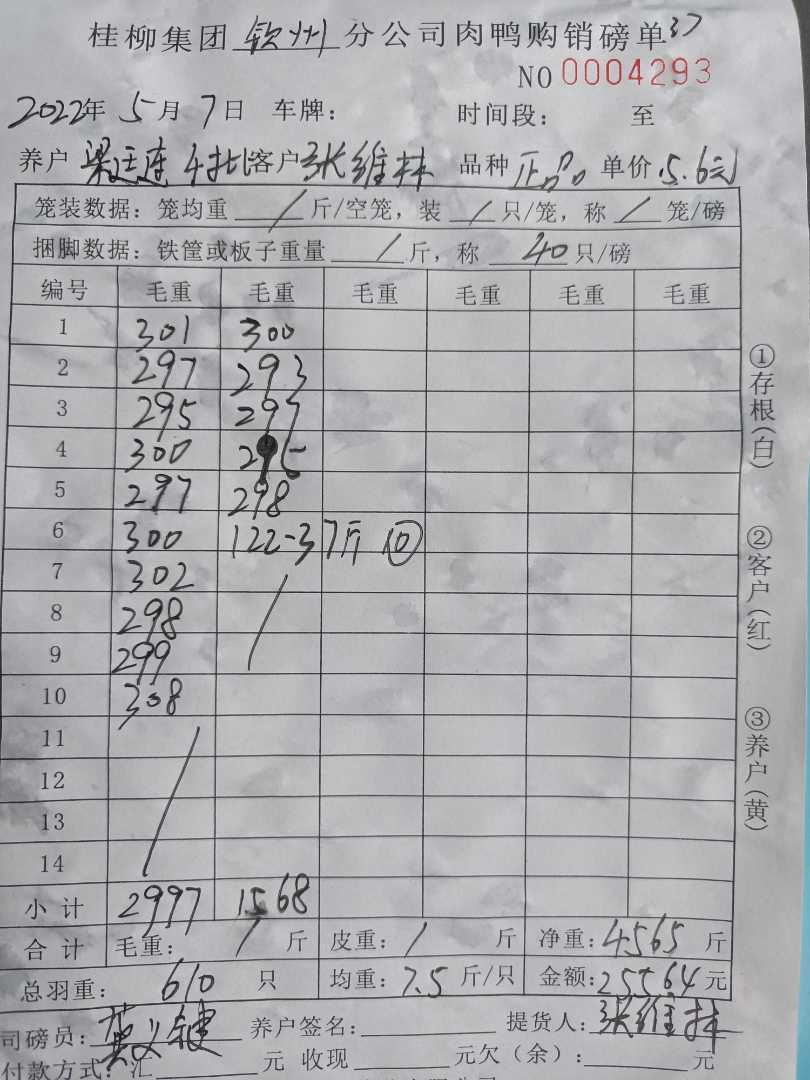 桂柳集团 钦州 分公司肉鸭购销磅单 37
NO 0004293
2022年 5月 7日 车牌: 时间段: 至
养户 梁廷连 4批 客户 张维林 品种 正品 单价 5.6元
笼装数据: 笼均重 / 斤/空笼, 装 / 只/笼, 称 / 笼/磅
捆脚数据: 铁筐或板子重量 / 斤, 称 40 只/磅
编号 毛重 毛重 毛重 毛重 毛重 毛重
1 301 300
2 297 293
3 295 297
4 300 295
5 297 298
6 300 122-37斤 ⑩
7 302 /
8 298
9 299
10 308
11 /
12
13
14
小计 2997 1568
合计 毛重: / 斤 皮重: / 斤 净重: 4565 斤
总羽重: 610 只 均重: 7.5 斤/只 金额: 25564 元
司磅员: 养户签名: 提货人: 张维林
付款方式: 汇 元 收现 元欠(余): 元
①存根(白)
②客户(红)
③养户(黄)